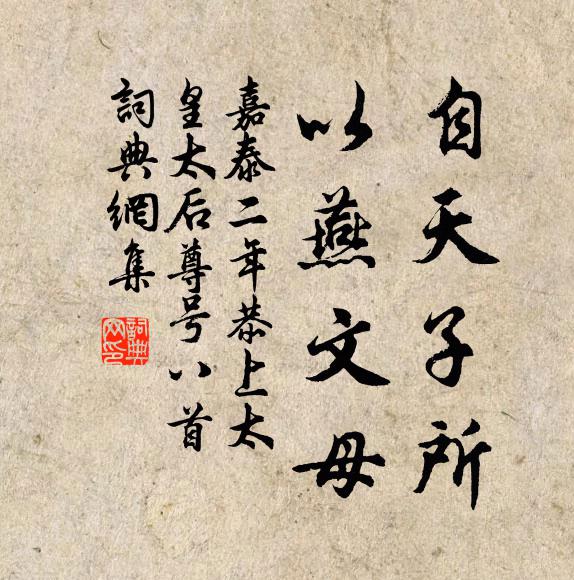 自天子所
以燕文母
嘉泰二年恭上太
皇太后尊号八首
詞典網集
詞典
网印